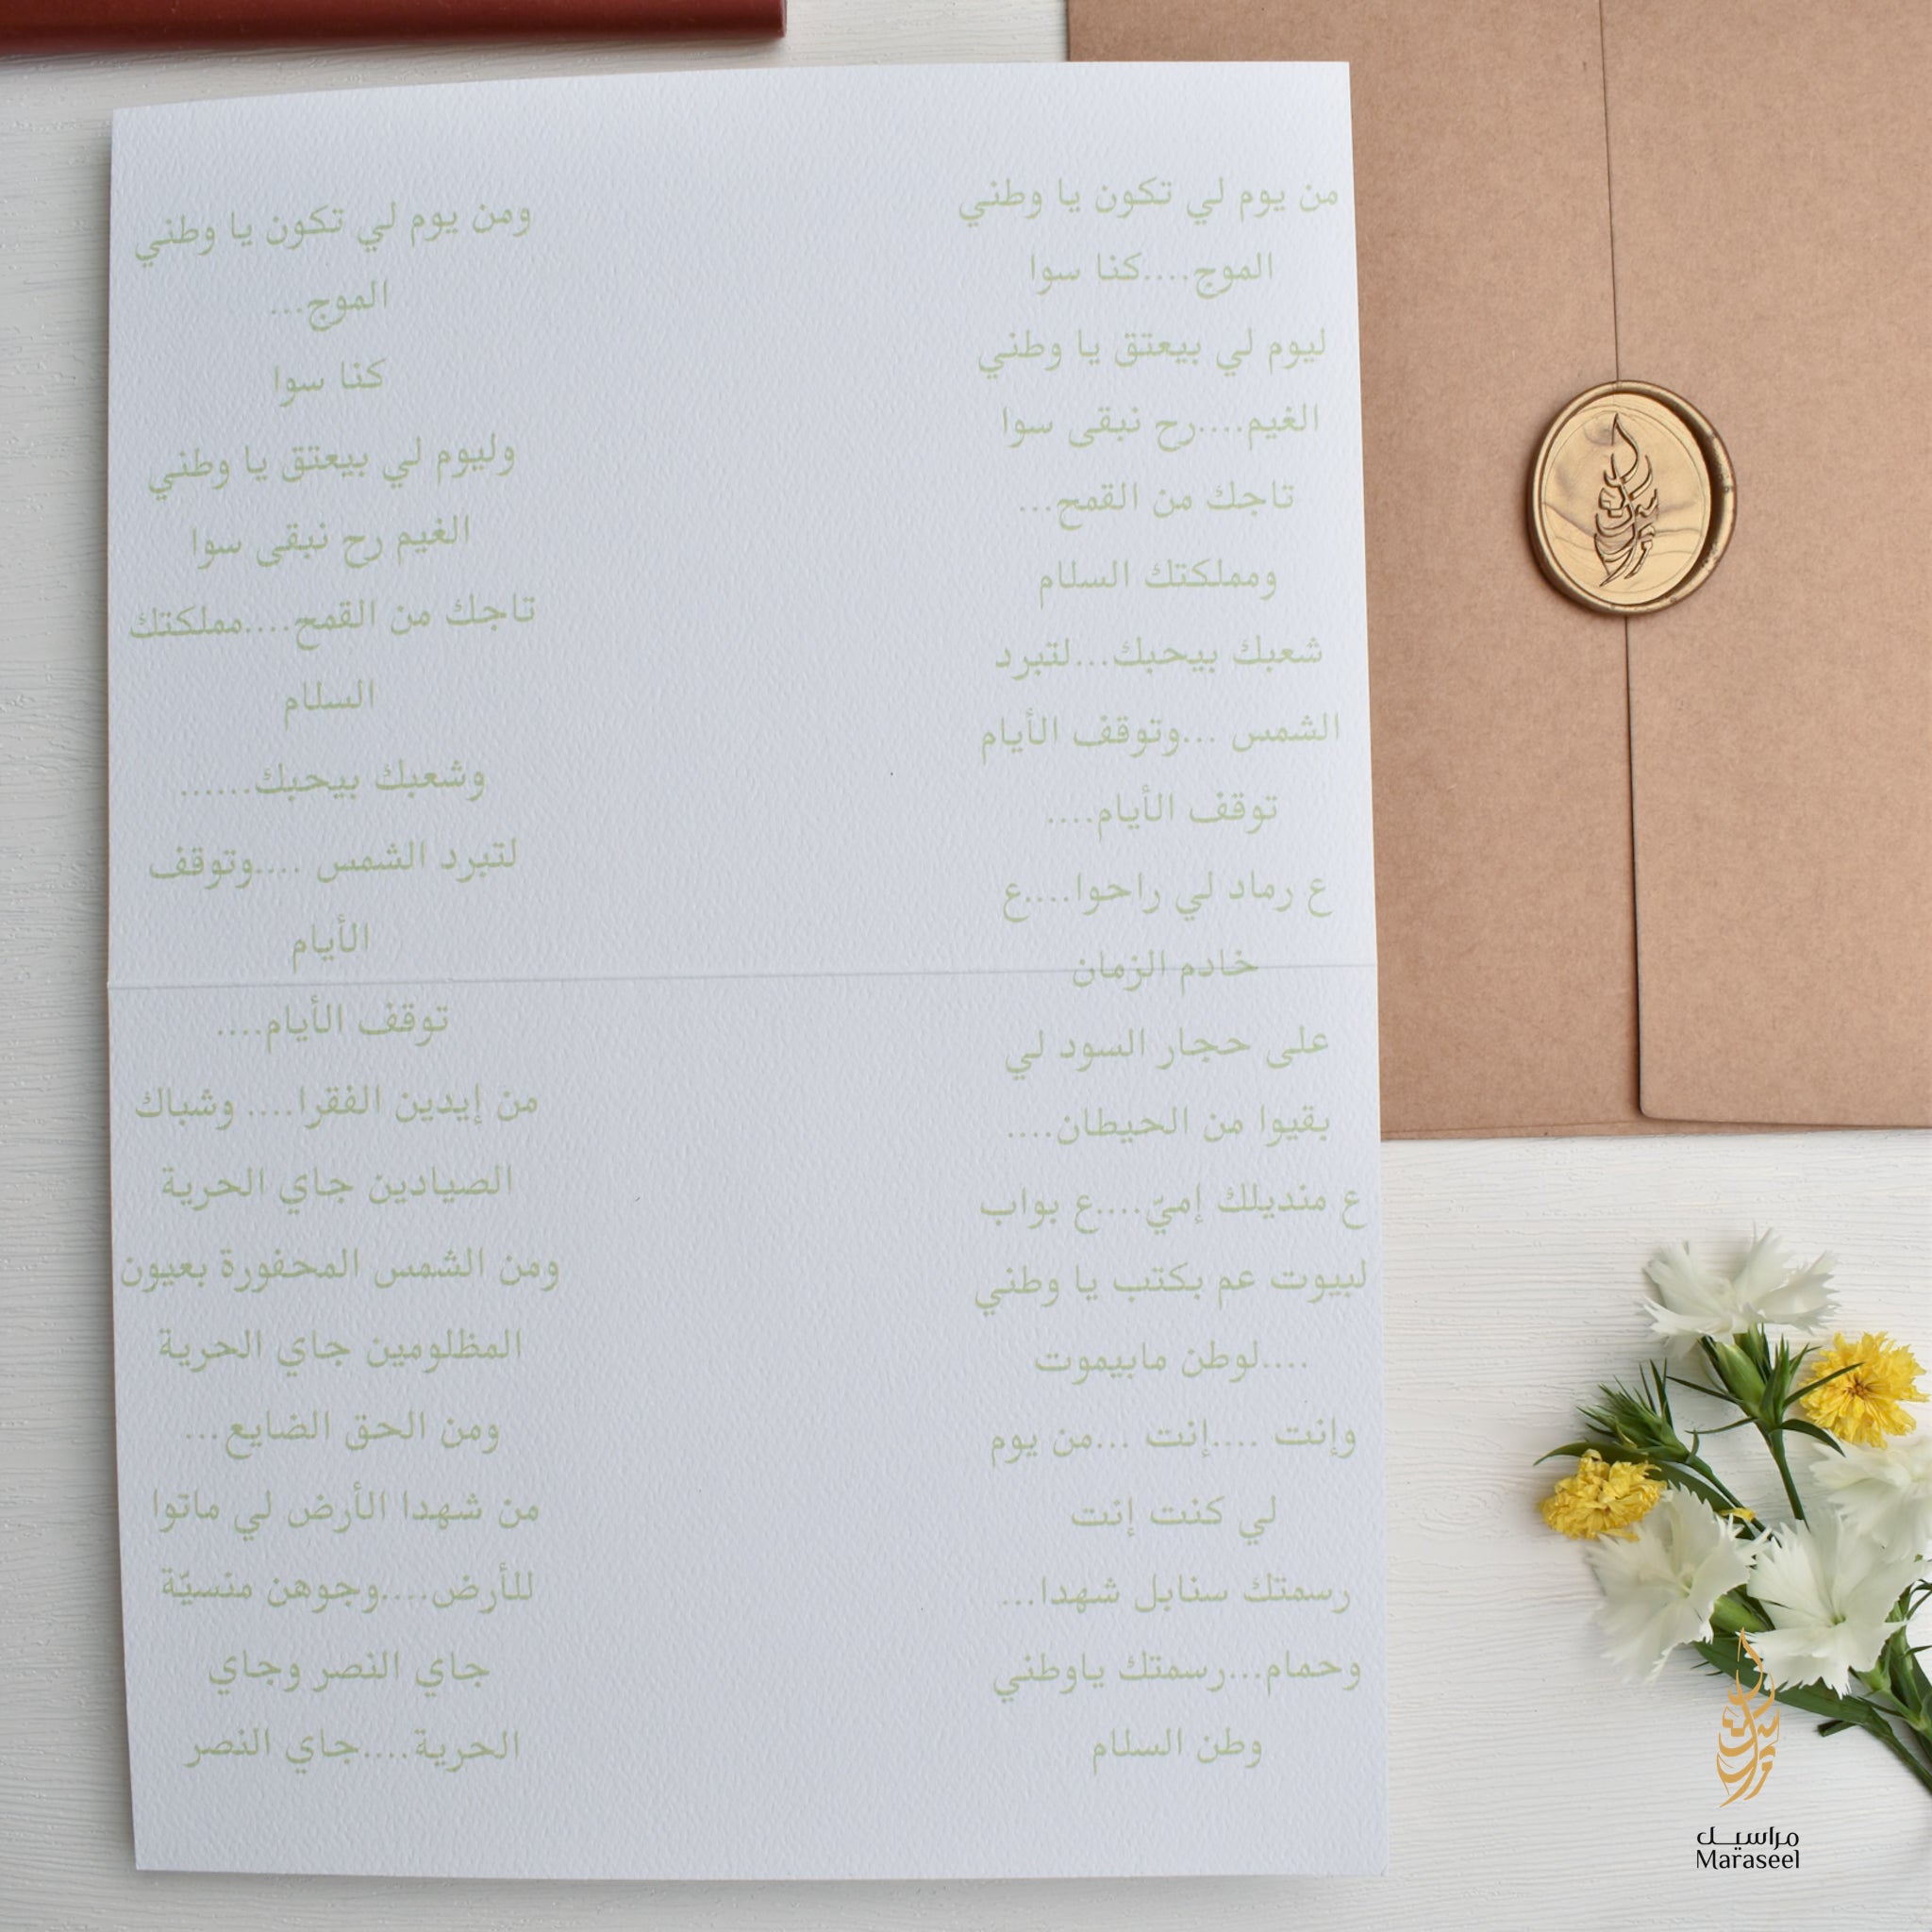 من يوم لي تكون يا وطني
الموج....كنا سوا
ليوم لي بيعتق يا وطني
الغيم....رح نبقى سوا
تاجك من القمح...
ومملكتك السلام
شعبك بيحبك...لتبرد
الشمس ...وتوقف الأيام
توقف الأيام....
ع رماد لي راحوا....ع
خادم الزمان
على حجار السود لي
بقيوا من الحيطان....
ع منديلك إميّ....ع بواب
لبيوت عم بكتب يا وطني
....لوطن مابيموت
وإنت ....إنت ...من يوم
لي كنت إنت
رسمتك سنابل شهدا...
وحمام...رسمتك ياوطني
وطن السلام
ومن يوم لي تكون يا وطني
الموج...
كنا سوا
وليوم لي بيعتق يا وطني
الغيم رح نبقى سوا
تاجك من القمح....مملكتك
السلام
وشعبك بيحبك......
لتبرد الشمس ....وتوقف
الأيام
توقف الأيام....
من إيدين الفقرا.... وشباك
الصيادين جاي الحرية
ومن الشمس المحفورة بعيون
المظلومين جاي الحرية
ومن الحق الضايع...
من شهدا الأرض لي ماتوا
للأرض....وجوهن منسيّة
جاي النصر وجاي
الحرية....جاي النصر
مراسيل
Maraseel